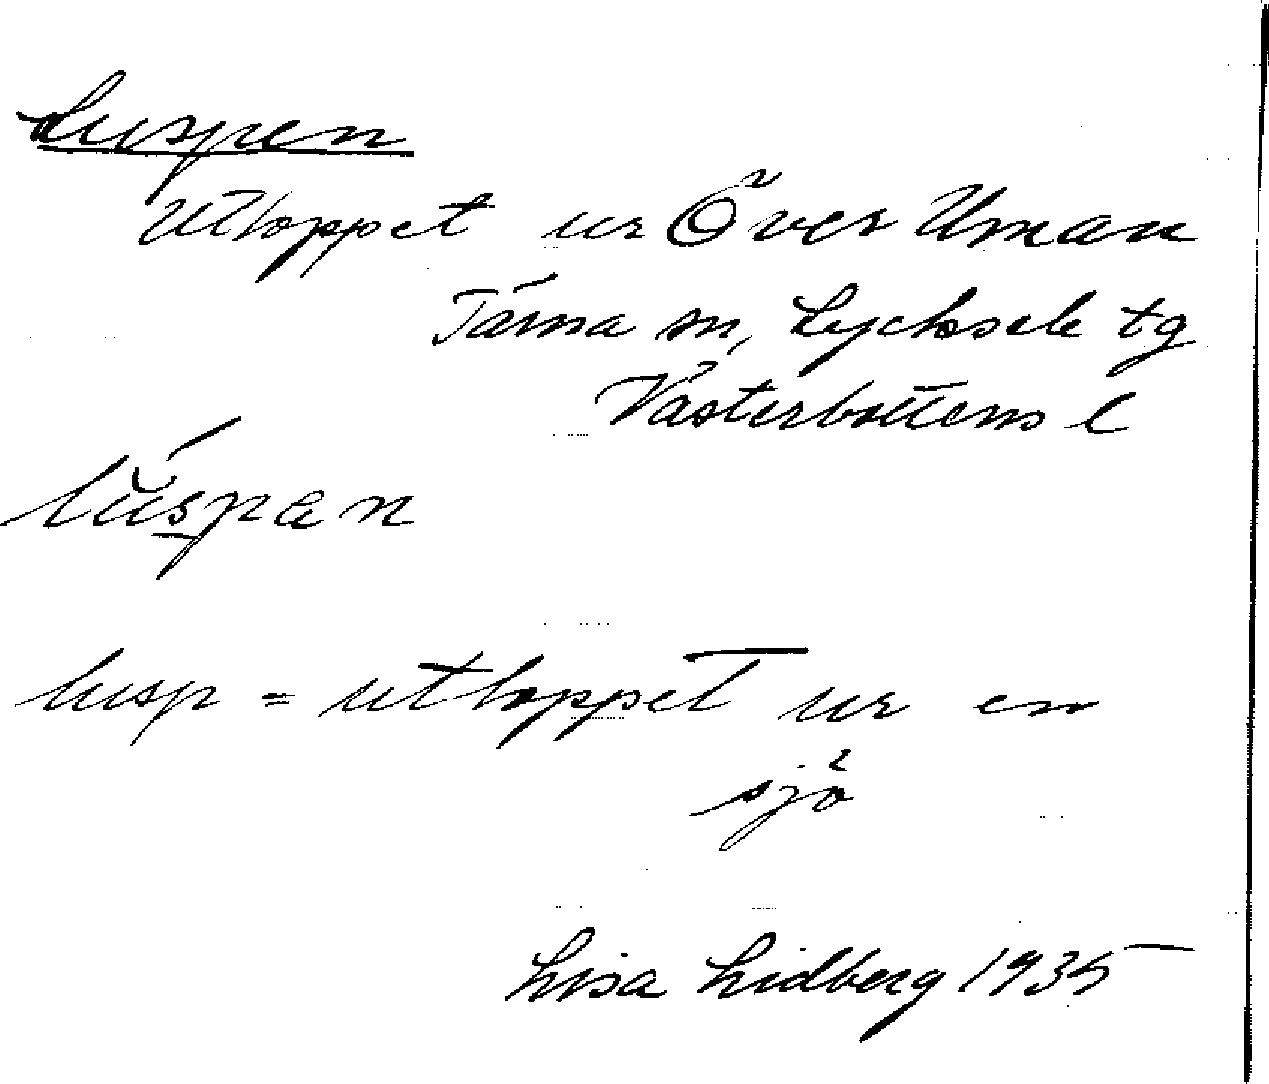 Luspen
Utloppet ur Över Uman
Tärna sn, Lycksele tg
Västerbottens l
lŭspan
lusp = utloppet ur en
sjö
Lisa Lidberg 1935